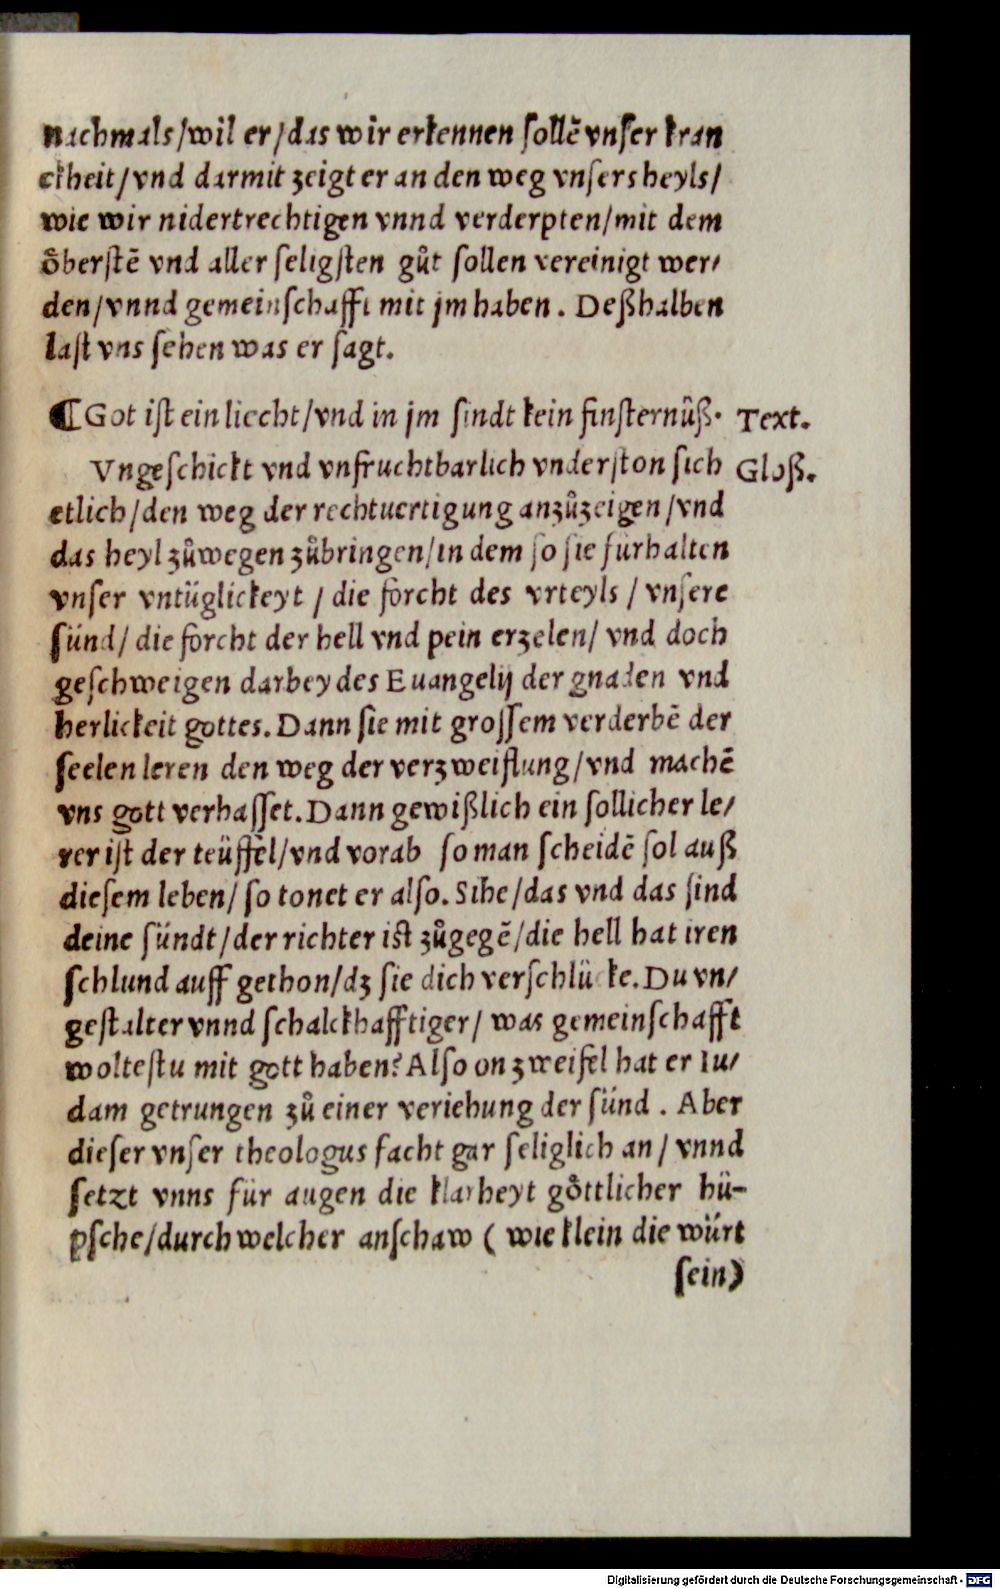 nachmals/wil er/das wir erkennen sollē vnser kran
ckheit/vnd darmit zeigt er an den weg vnsers heyls/
wie wir nidertrechtigen vnnd verderpten/mit dem
oͤberstē vnd aller seligsten gůt sollen vereinigt wer/
den/vnnd gemeinschafft mit jm haben. Deßhalben
last vns sehen was er sagt.
¶ Got ist ein liecht/vnd in jm sindt kein finsternüß. Text.
Vngeschickt vnd vnfruchtbarlich vnderston sich Gloß.
etlich/den weg der rechtuertigung anzůzeigen/vnd
das heyl zůwegen zůbringen/in dem so sie fürhalten
vnser vntüglickeyt / die forcht des vrteyls / vnsere
sünd/ die forcht der hell vnd pein erzelen/ vnd doch
geschweigen darbey des Euangelij der gnaden vnd
herlickeit gottes. Dann sie mit grossem verderbē der
seelen leren den weg der verzweiflung/vnd machē
vns gott verhasset. Dann gewißlich ein sollicher le/
rer ist der teüffel/vnd vorab so man scheidē sol auß
diesem leben/ so tonet er also. Sihe/das vnd das sind
deine sündt/der richter ist zůgegē/die hell hat iren
schlund auff gethon/dz sie dich verschlücke. Du vn/
gestalter vnnd schalckhafftiger/ was gemeinschafft
woltestu mit gott haben? Also on zweifel hat er Iu/
dam getrungen zů einer veriehung der sünd . Aber
dieser vnser theologus facht gar seliglich an/ vnnd
setzt vnns für augen die klarheyt goͤttlicher hü-
psche/durch welcher anschaw ( wie klein die würt
sein)
Digitalisierung gefördert durch die Deutsche Forschungsgemeinschaft - DFG